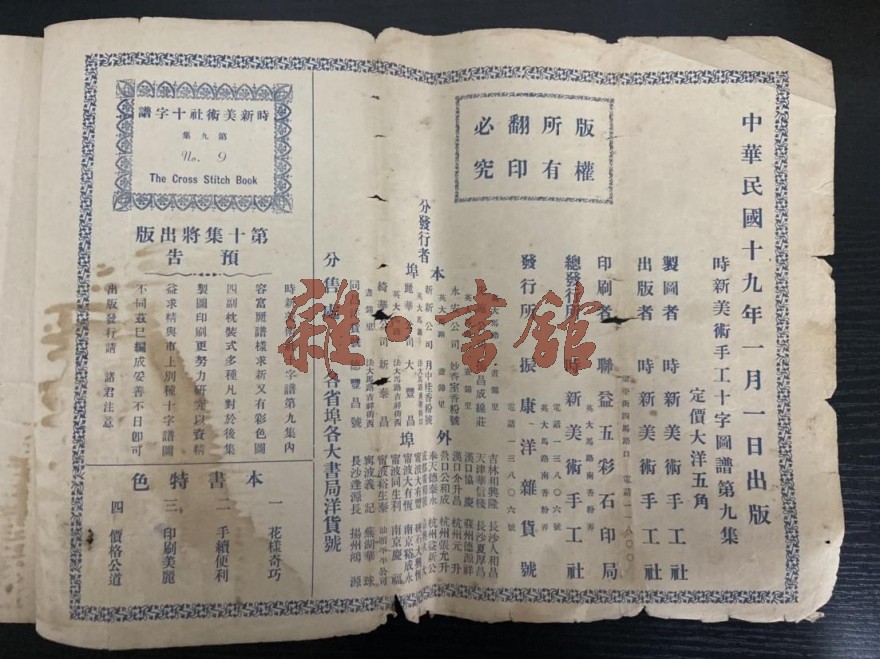 中華民國十九年一月一日出版
時新美術手工十字圖譜第九集
定價大洋五角
製圖者 時新美術手工社
出版者 時新美術手工社
印刷者 聯益五彩石印局
總發行所 時新美術手工社
英大馬路南香粉弄
電話一三八〇六號
發行所 振康洋雜貨號
英大馬路南香粉弄
電話一三八〇六號
版權所有
翻印必究
分發行者
本埠
外埠
吉林相興隆 長沙人和昌
天津華信棧 長沙夏厚昌
漢口協慶 蘇州德源祥
漢口介升昌 杭州元升
營口公和成 杭州張允升
奉天德泰永 杭州益新公
寧波大有恆 南京裕成永
寧波同生利 南京慶福
寧波裕生泰
寧波義記 蘇湖華球
長沙達源長 揚州鴻源
各省埠各大書局洋貨號
時新美術社十字譜
第九集
No. 9
The Cross Stitch Book
第十集將出版
預告
容富麗譜樣求新又有彩色圖
四副枕裝式多種凡對於後集
製圖印刷更努力研究以資精
益求精與市上別種十字譜圖
不同茲已編成妥善不日卽可
出版發行請 諸君注意
本書特色
一 花樣奇巧
二 手續便利
三 印刷美麗
四 價格公道
雜·書館